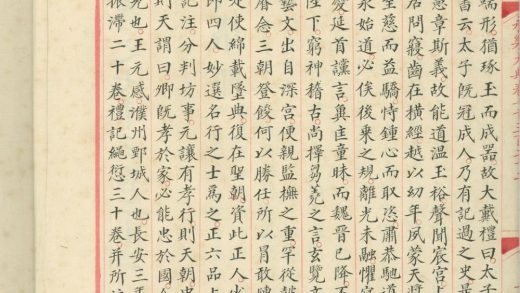 端形猶琢玉而成器故大戴禮曰太
書云太子既冠成人乃有記過之史是
慈章斯義故能道溫玉裕聲聞宸宮上
居問寢齒在橫經越以幼年夙蒙天將
至慈而益驕恃鍾心而取恣肅恭馳道
永始道必俟後乘之規離光未融懼
爰延首讜言與童昧而魏晉已降
陛下窮神稽古尚擇芻蕘之言玄覽文
藝文出自深宮便親監撫之重罕從
眷念三朝登餕何以勝任所以冒敢陳
定使綿載墜典復在聖朝資此正人少
即四人妙選名行之士為之正六品上
記注分判坊事元讓有孝行則天朝
則天謂曰卿既孝於家必能忠於國
完也王元感濮州鄄城人也長安三
振滯二十卷禮記繩愆三十卷并所